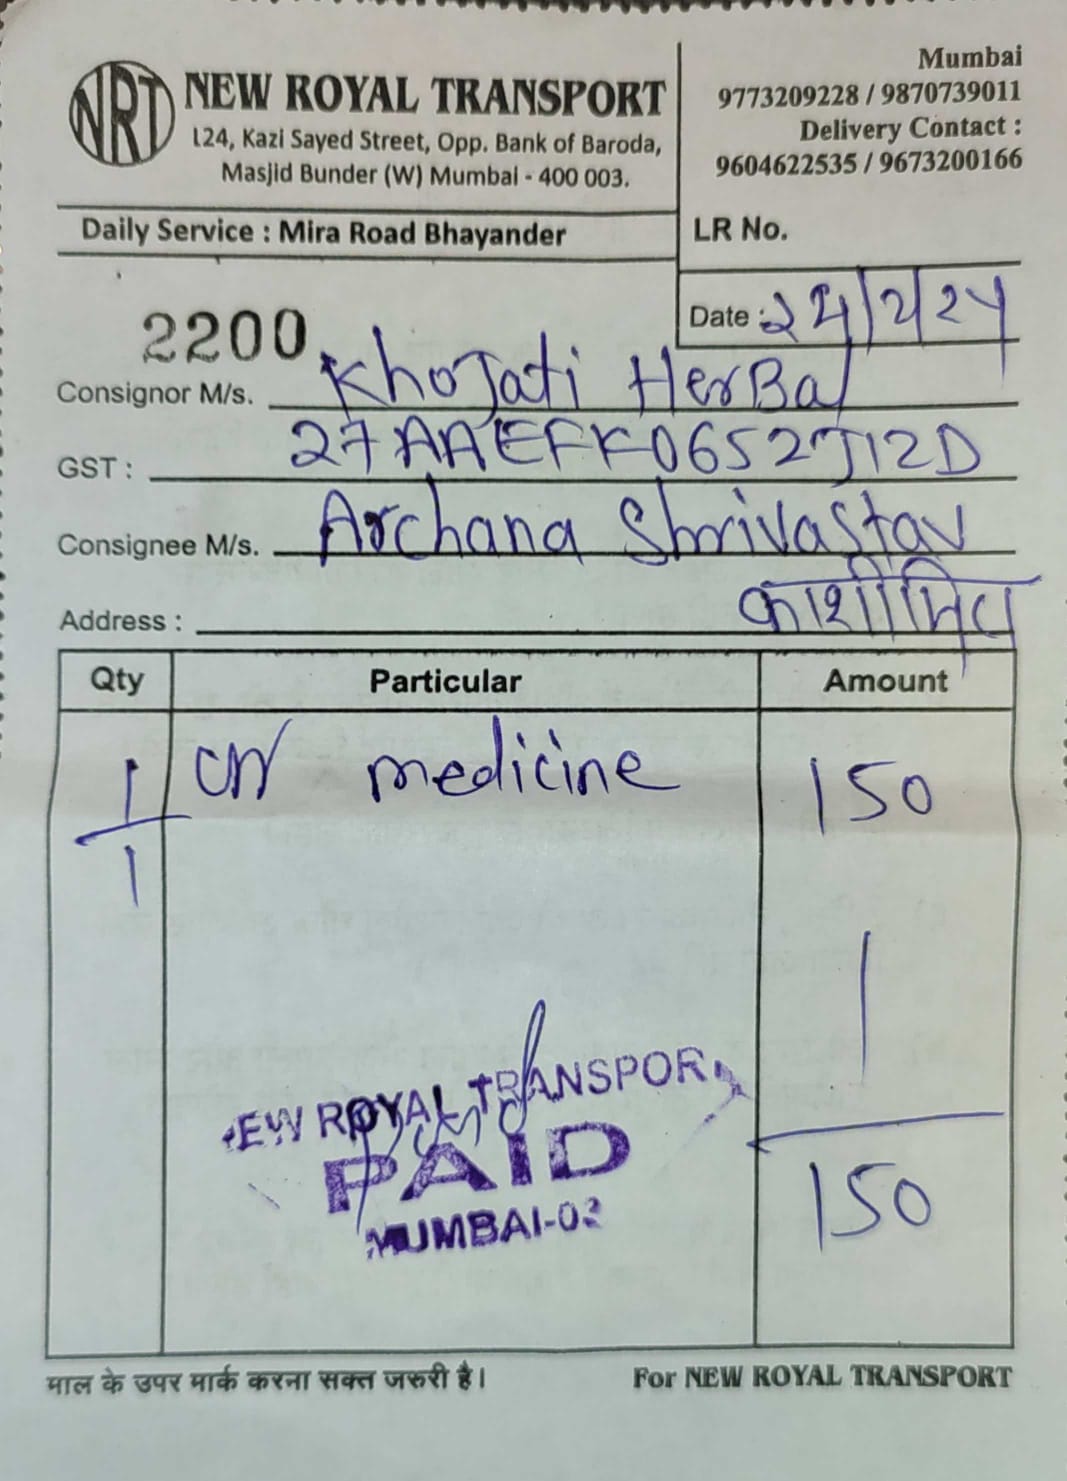 NRT
NEW ROYAL TRANSPORT
124, Kazi Sayed Street, Opp. Bank of Baroda,
Masjid Bunder (W) Mumbai - 400 003.
Mumbai
9773209228 / 9870739011
Delivery Contact :
9604622535 / 9673200166
Daily Service : Mira Road Bhayander
LR No.
2200
Date : 24/2/24
Consignor M/s. Khojati Herbal
GST : 27AAEFK0652J1ZD
Consignee M/s. Archana Shrivastav
Address :
Qty Particular Amount
1 medicine 150
1
EW ROYAL TRANSPOR
PAID
MUMBAI-03
150
माल के उपर मार्क करना सक्त जरुरी है।
For NEW ROYAL TRANSPORT